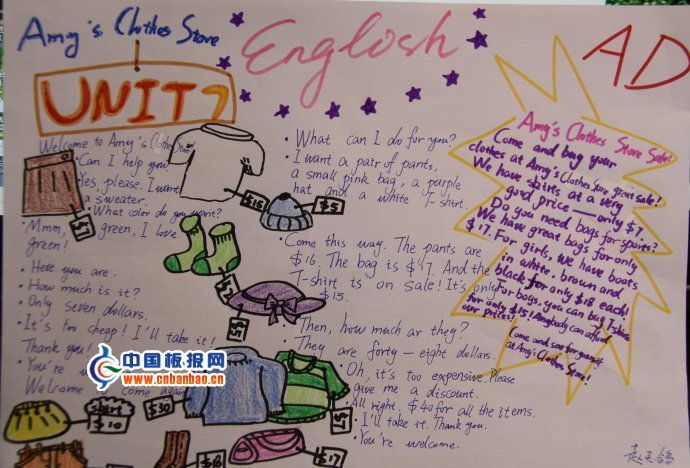 Amy's Clothes Store
Englosh
AD
UNIT 7
Welcome to Amy's Clothes Store
• Can I help you
• Yes, please. I want
a sweater.
• What color do you want?
• Mmm, green, I love
green!
• Here you are.
• How much is it?
• Only seven dollars.
• It's too cheap! I'll take it!
Thank you!
• You're
Welcome to come again
• What can I do for you?
• I want a pair of pants,
a small pink bag, a purple
hat and a white T-shirt.
• Come this way. The pants are
$16. The bag is $17. And the
T-shirt is on sale! It's only
$15.
• Then, how much ar they?
• They are forty-eight dollars.
• Oh, it's too expensive. Please
give me a discount.
• All right. $40 for all the items.
• I'll take it. Thank you.
• You're welcome.
Amy's Clothes Store Sale!
Come and buy your
clothes at Amy's Clothes Store great sale!
We have shirts at a very
good price — only $7.
Do you need bags for sports?
We have great bags for only
$17. For girls, We have boots
in white, brown and
black for only $18 each!
For boys, you can buy T-shirts
for only $15! Anybody can afford
our prices!
Come and see for yourself
at Amy's Clothes Store!
$7
$15
$5
$30
$10
$17
中国板报网
www.cnbanbao.cn